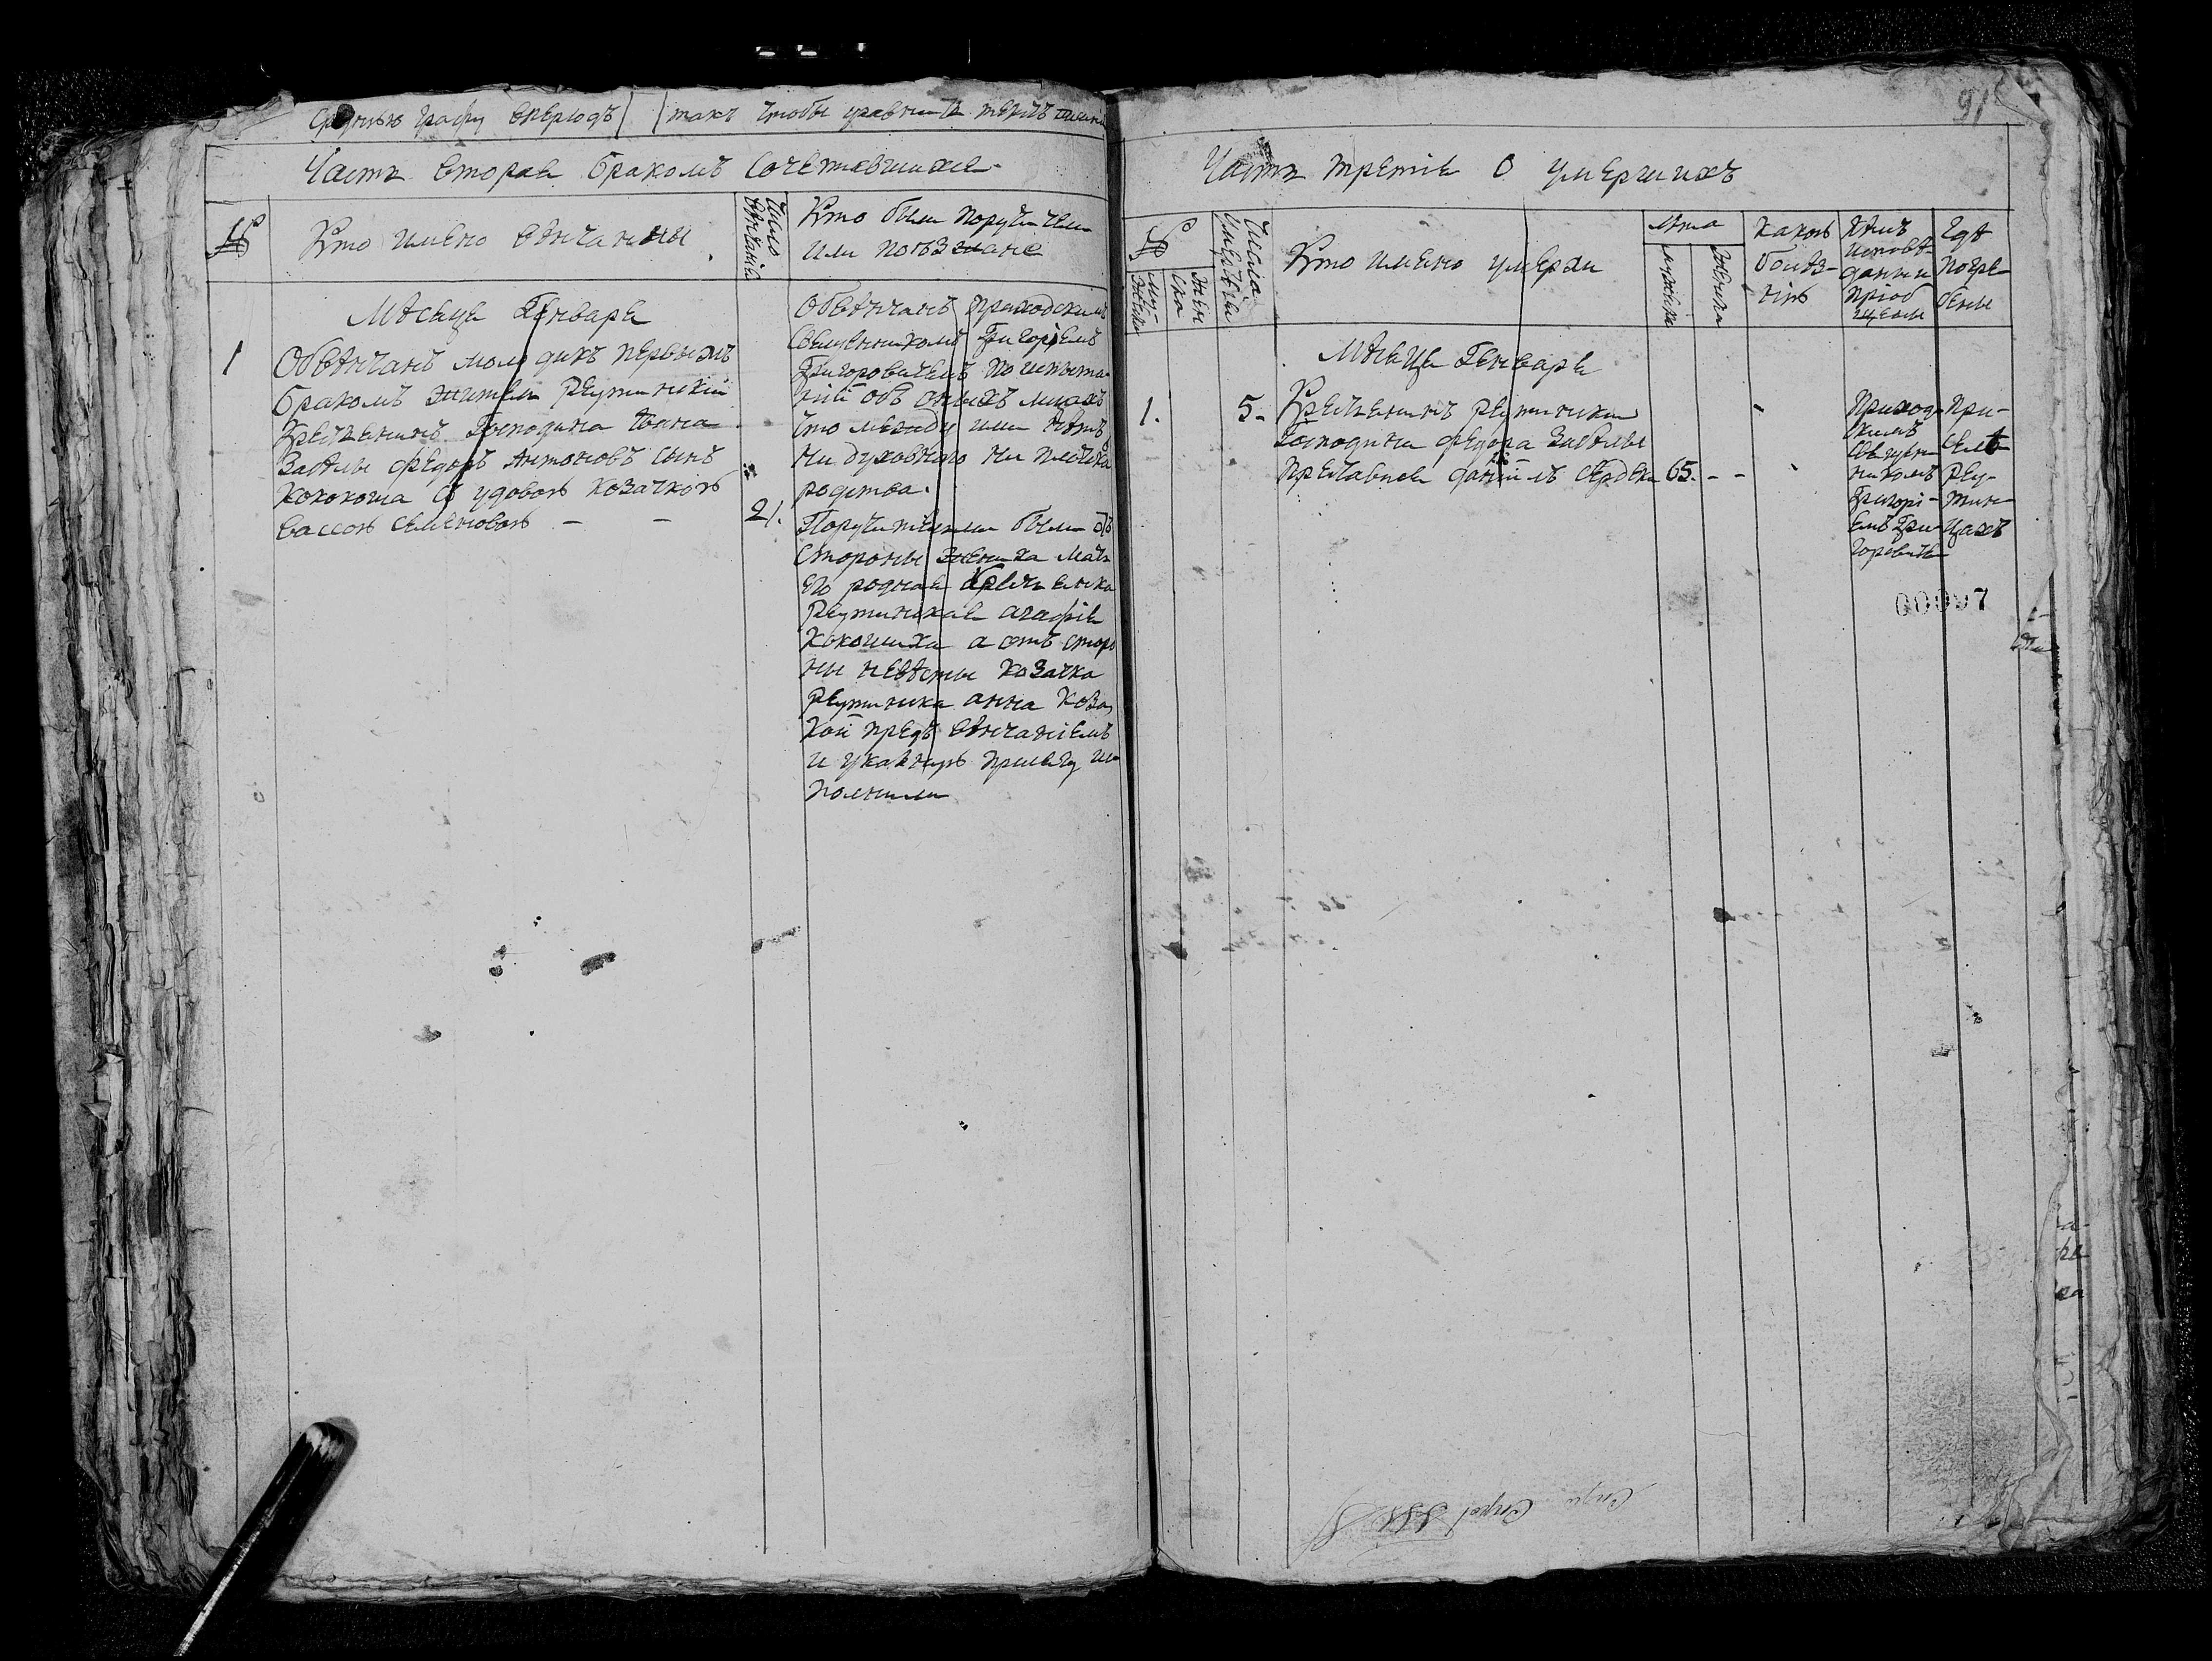 среднюю графу впередъ) (такъ чтобы уравнить
Часть вторая бракомъ сочетавшихся
№
Кто имено вѣнчанны
Число вѣнчанія
Кто были поручители
или поѣзжане
Мѣсяца Генваря
1
Обвѣнчанъ молодикъ первымъ
бракомъ житель Реутинскій
Крестьянинъ Господина Ивана
Забѣлы Федоръ Антоновъ сынъ
Кокоша съ удовою козачкою
Вассою Семеновою - -
21.
Обвѣнчанъ приходскимъ
священникомъ Григоріемъ
Григоровичемъ по испыта
ніи объ оныхъ лицахъ
что между ими нѣтъ
ни духовного ни плотска
родства.
Поручителями были отъ
стороны жениха мать
его родная крестьянка
Реутинская Агафія
Кокошиха а отъ сторо
ны невѣсты козачка
Реутинска Анна Коза
кой предъ вѣнчаніемъ
и указную присягу ис
полнили
91
Часть третія О умершихъ
№
муж
жен
ска
Числа
Кто имено умерли
лѣта
мужеска
женска
какою
болѣз-
нію
Кѣмъ
исповѣ-
даны и
пріоб
щены
Гдѣ
погре-
бены
Мѣсяца Генваря
1.
5.
Крестьянинъ Реутински
Господина Федора Забѣлы
преставися Даніилъ Сердюк 65. - -
приход-
скимъ
священ-
никомъ
Григорі-
емъ Гри-
горовичем
при-
селѣ
Реу-
тин-
цахъ
00097